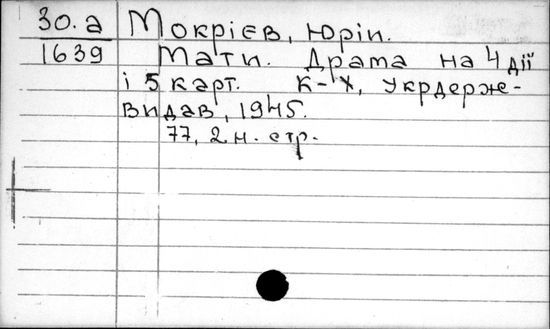 30.а Мокрієв, Юрій.
1639 Мати. Драма на 4 дії
і 5 карт. К-Х, Укрдерже-
видав, 1945.
77, 2 н. стр.